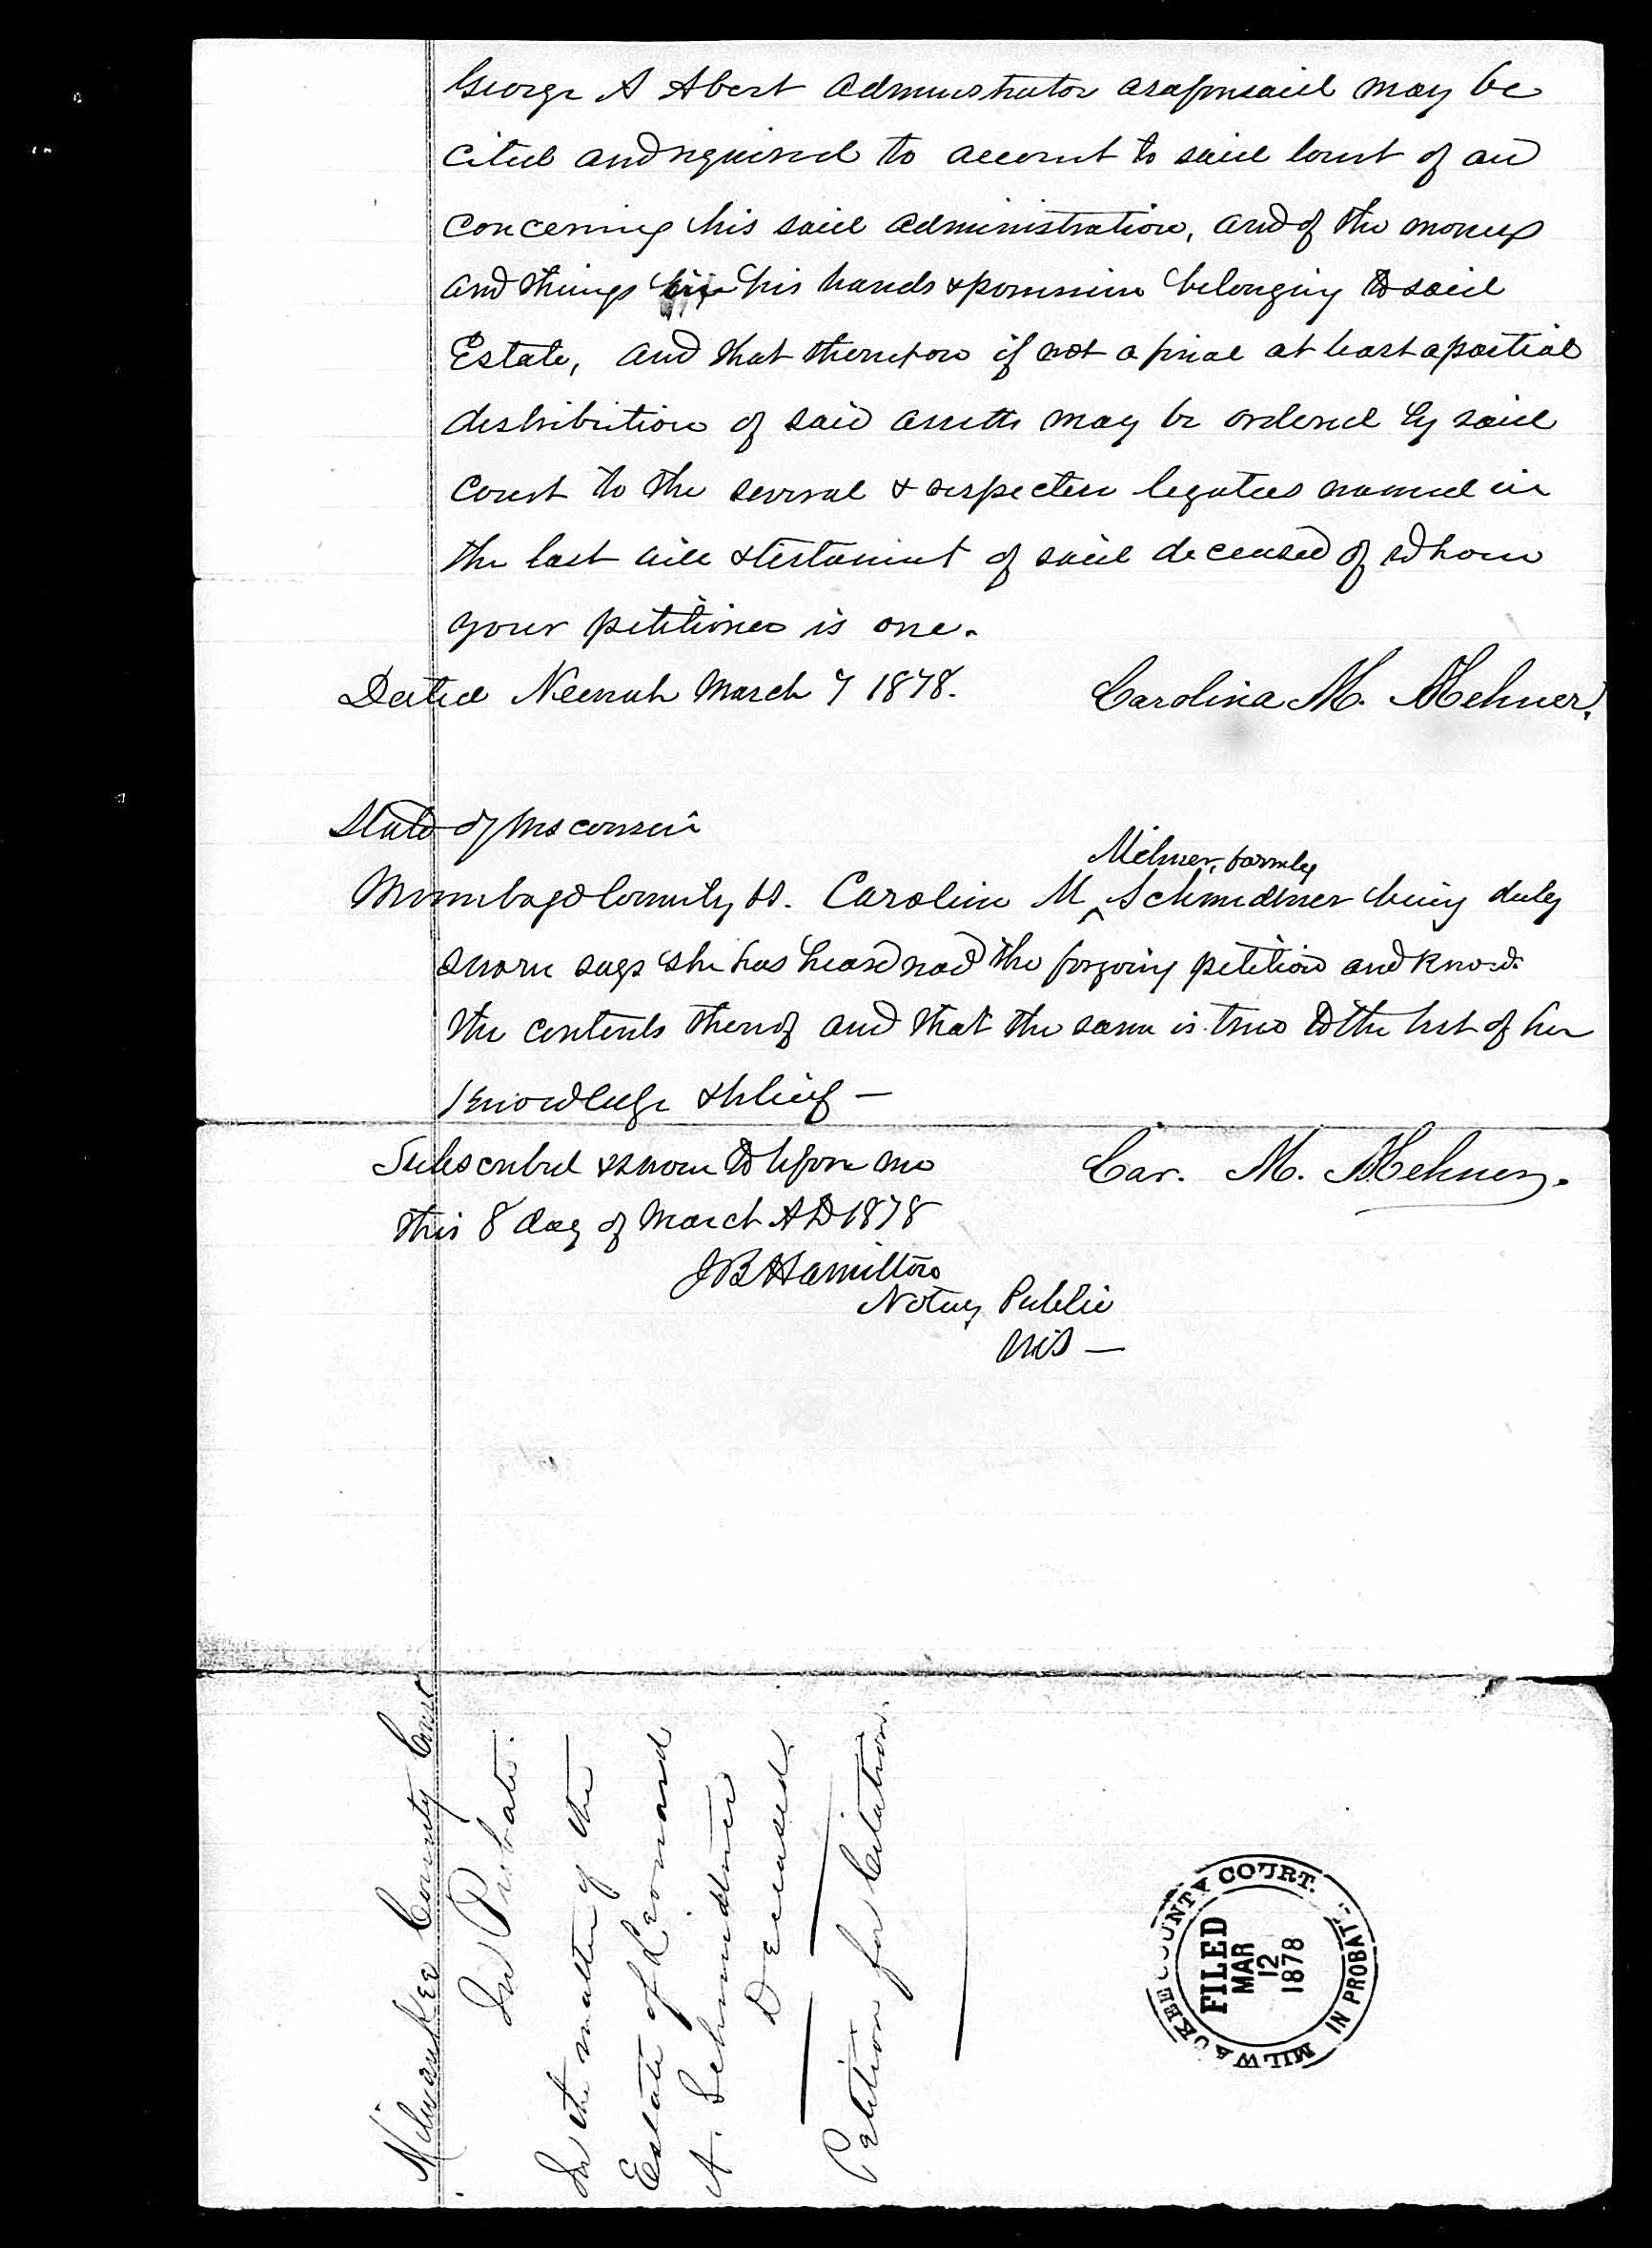 George A Abert administrator as aforesaid may be
cited and required to account to said Court of and
concerning his said administration, and of the moneys
and things in his hands & possession belonging to said
Estate, and that therefore if not a final at least a partial
distribution of said assetts may be ordered by said
Court to the several & respective legatees named in
the last will & testament of said deceased of whom
your petitioner is one.
Dated Neenah March 7 1878. Carolina M. Mehner.
State of Wisconsin
Mehner, formly
Winnebago County ss. Caroline M ^ Schmidtner being duly
sworn says she has heard read the forgoing petition and knows
the contents thereof and that the same is true to the best of her
knowledge & belief —
Subscribed & sworn to before me Car. M. Mehner.
this 8 day of March AD 1878
JB Hamilton
Notary Public
Wis —
Milwaukee County Court
In Probate.
In the matter of the
Estate of Leonard
A. Schmidtner
Deceased.
Petition for Citation.
MILWAUKEE COUNTY COURT.
FILED
MAR
12
1878
IN PROBATE